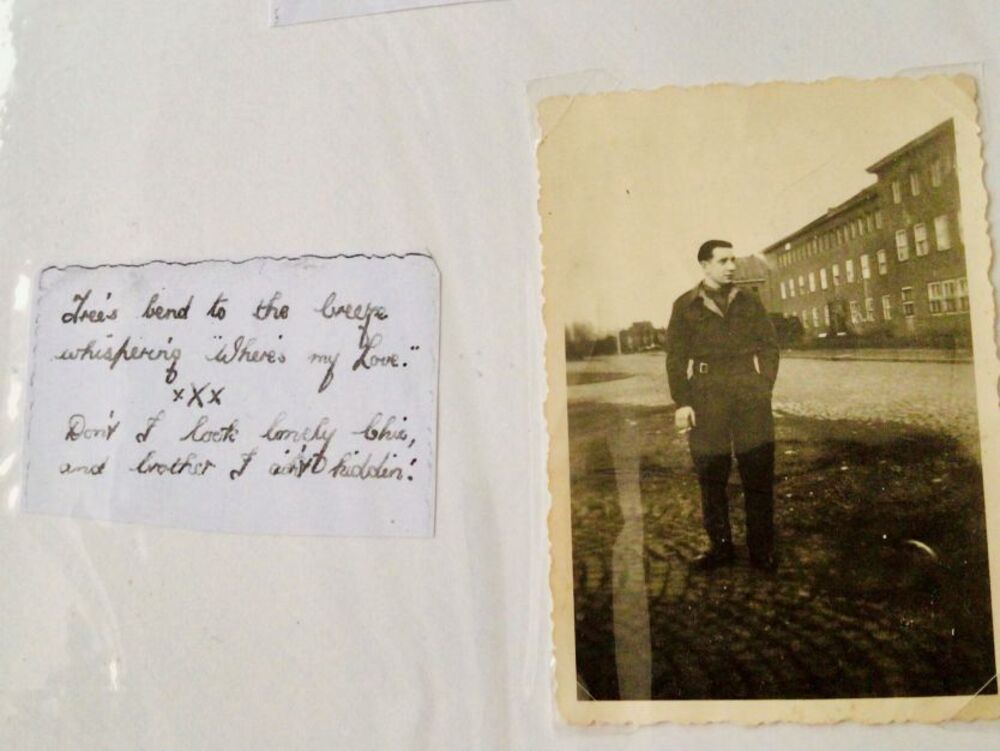 Tree's bend to the breeze
whispering "Where's my Love."
xXx
Don't I look lonely Chis,
and brother I ain't kiddin'.